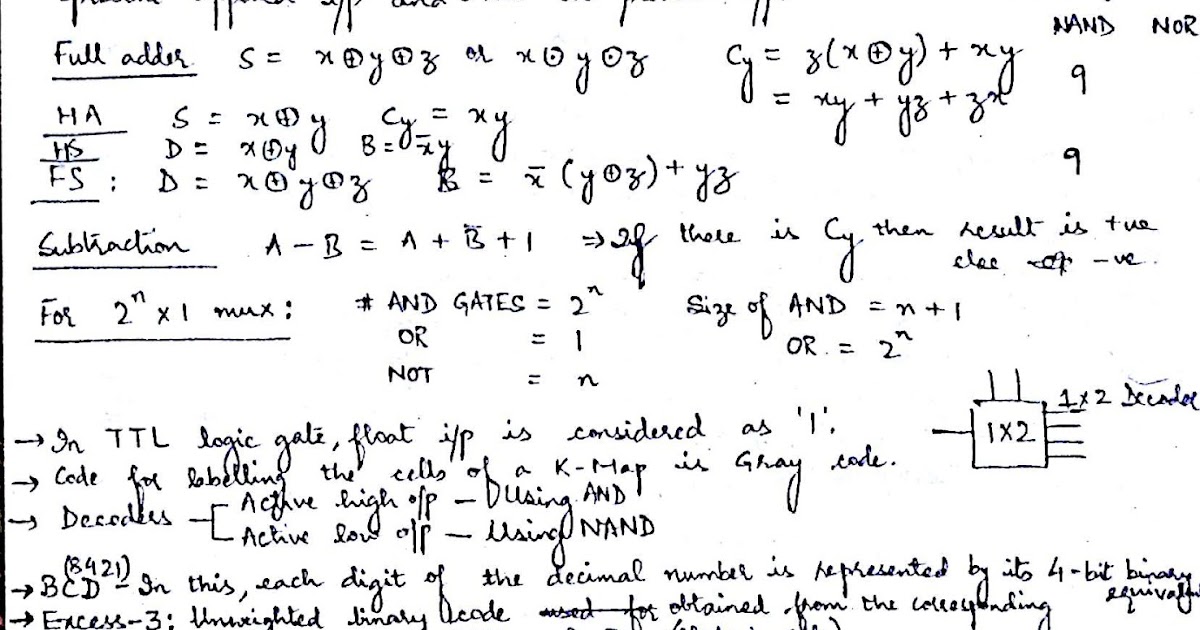 NAND NOR
Full adder S = x⊕y⊕z or x⊙y⊙z Cy = z(x⊕y) + xy 9
= xy + yz + zx
HA S = x⊕y Cy = xy
HS D = x⊕y B = x̄y
FS : D = x⊕y⊕z B = x̄(y⊙z) + yz 9
Subtraction A - B = A + B̄ + 1 ⇒ If there is Cy then result is +ve
else -ve.
For 2ⁿ x 1 mux : # AND GATES = 2ⁿ Size of AND = n + 1
OR = 1 OR. = 2ⁿ
NOT = n
1x2 Decoder
1X2
→ In TTL logic gate, float i/p is considered as '1'.
→ Code for labelling the cells of a K-Map is Gray code.
→ Decoders - Active high o/p - Using AND
Active low o/p - Using NAND
(8421)
→ BCD - In this, each digit of the decimal number is represented by its 4-bit binary
equival
→ Excess-3: Unweighted binary code used for obtained from the corresponding